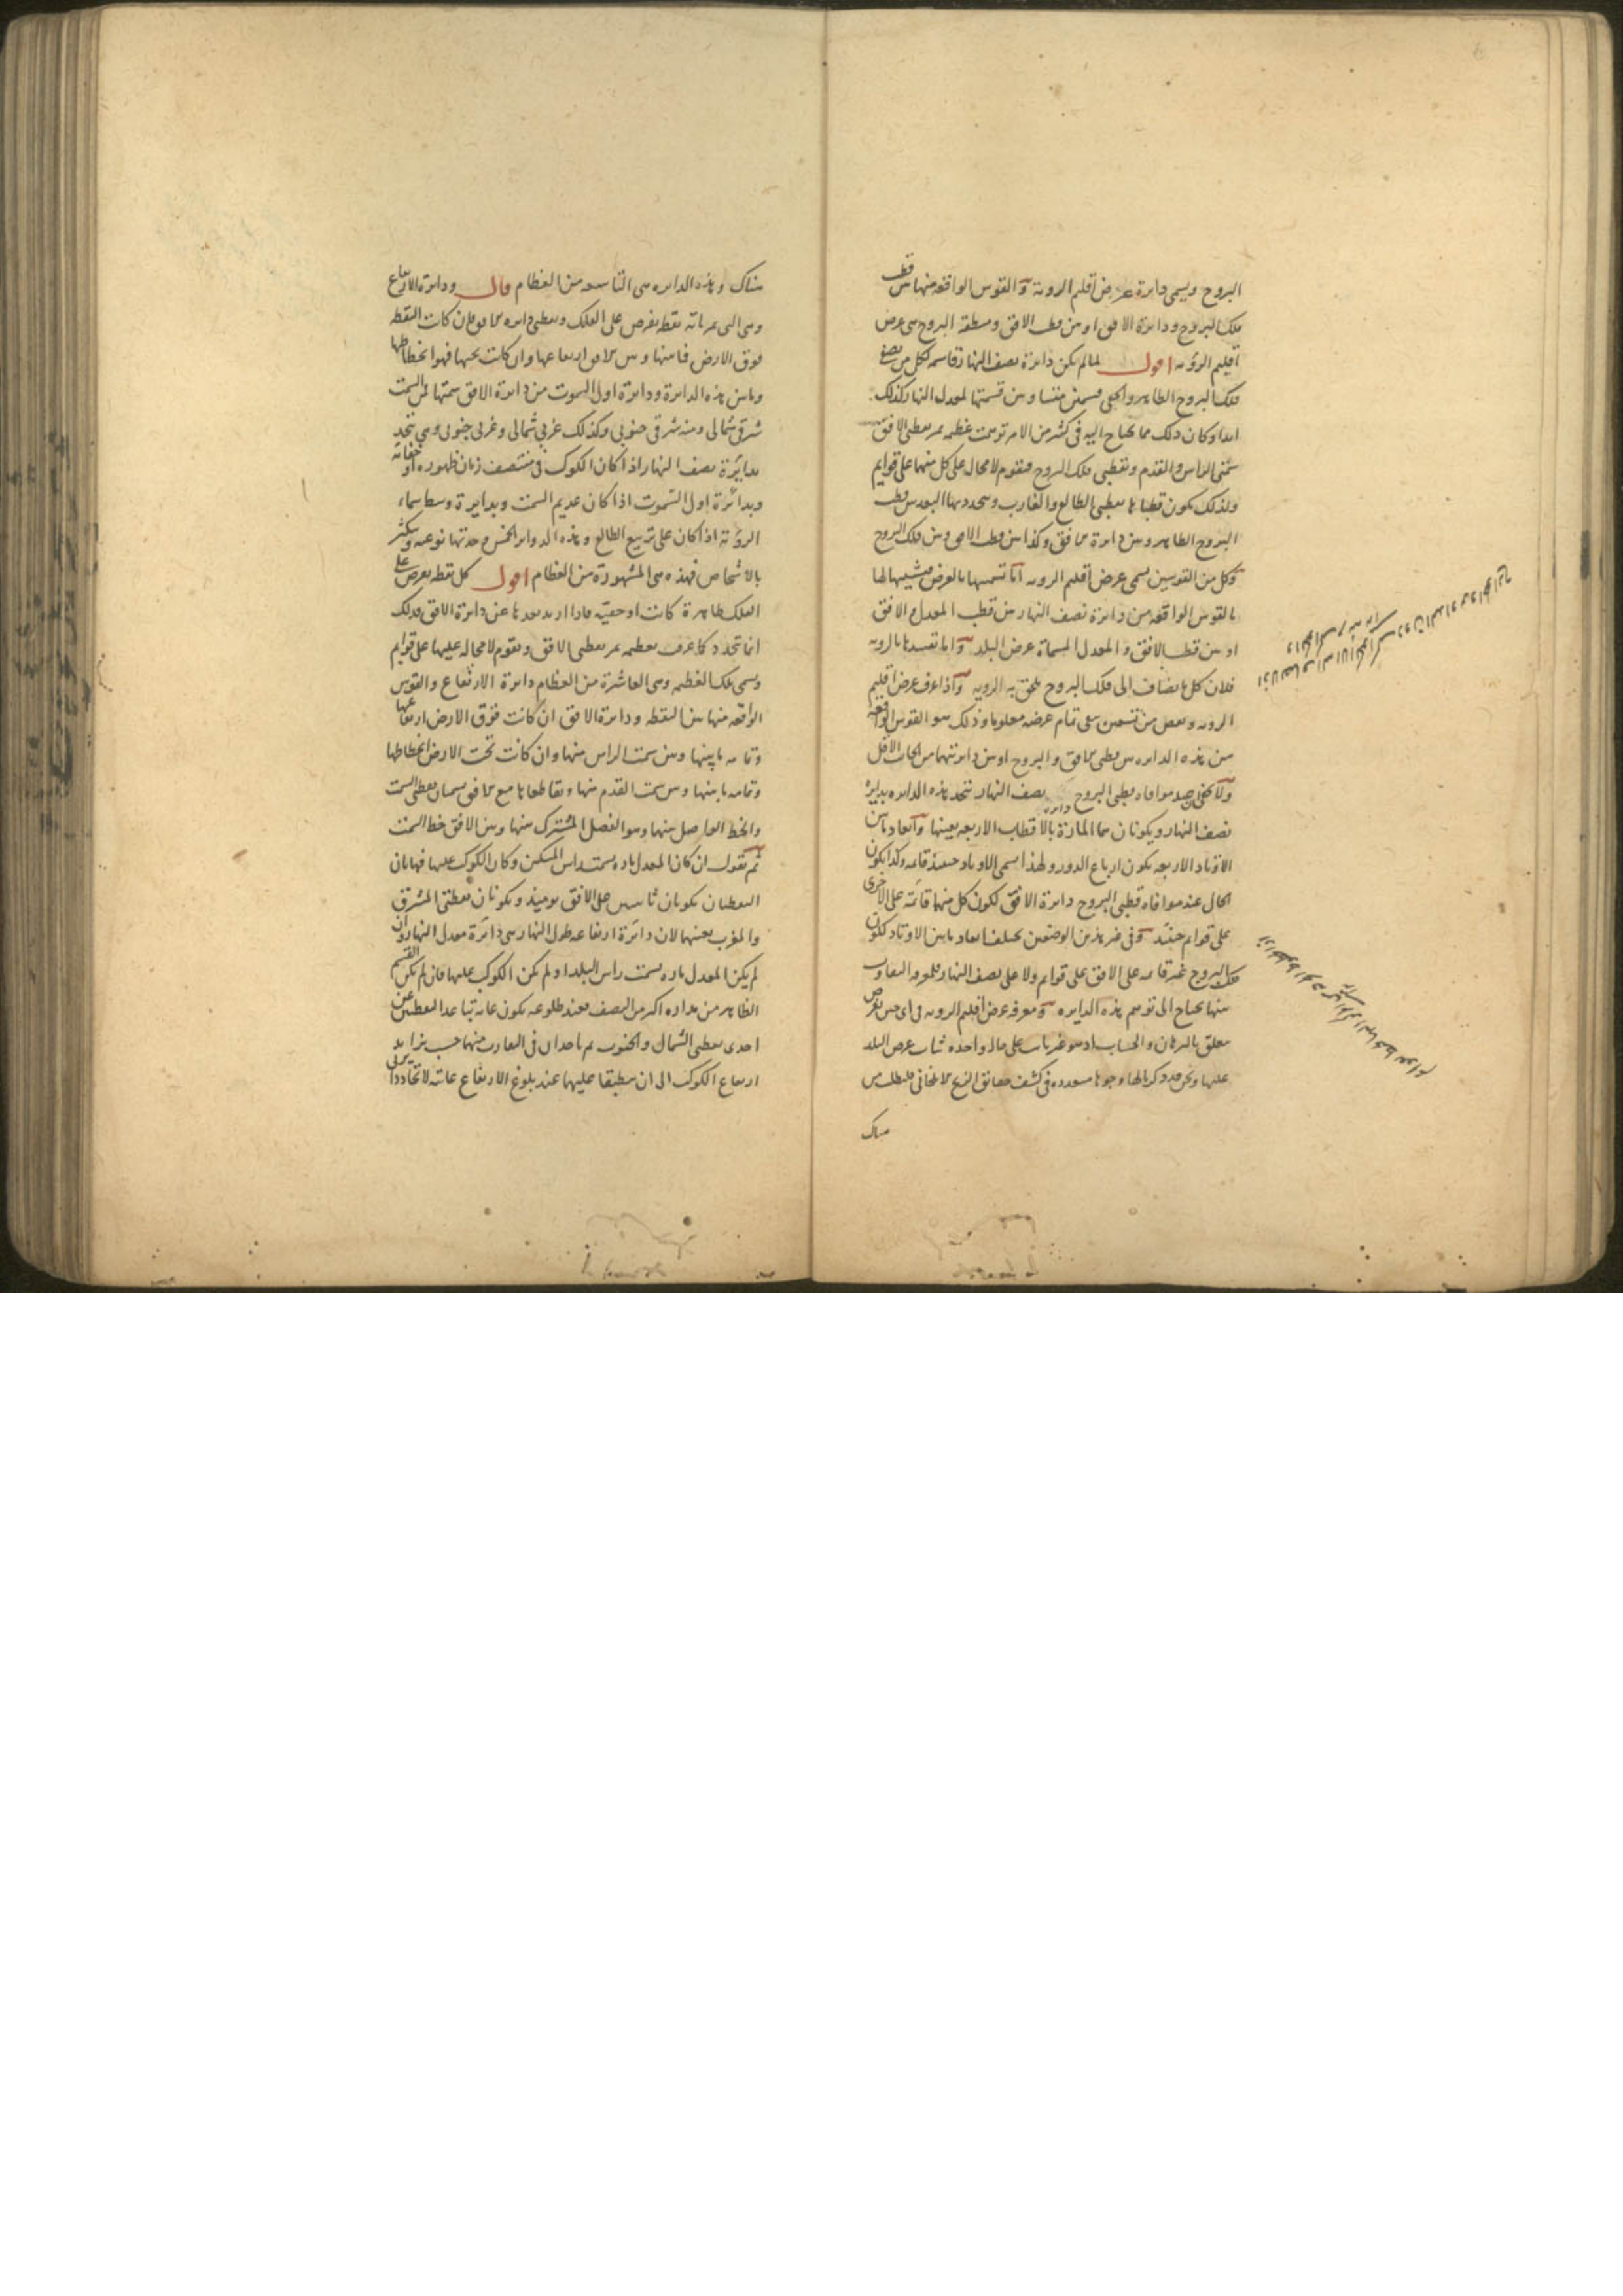 البروج ويسمى دائرة عرض اقليم الروية والقوس الواقعة منها بين قطب
فلك البروج ودائرة الافق او بين قطب الافق ومنطقة البروج هي عرض
اقليم الروية اقول لما لم تكن دائرة نصف النهار قاسمة لكل من نصفي
فلك البروج الظاهر والخفي بقسمين متساويين قسمتها لمعدل النهار كذلك
ابدا وكان ذلك مما يحتاج اليه في كثير من الامر توهمت عظيمة تمر بقطبي الافق
سمتي الراس والقدم وبقطبي فلك البروج فتقوم لا محالة على كل منهما على قوايم
ولذلك يكون قطباها نقطتي الطالع والغارب ويتحدد بها البعد بين قطب
البروج الظاهر وبين دائرة الافق وكذا بين قطب الافق وبين فلك البروج
وكل من القوسين يسمى عرض اقليم الروية اما تسميتها بالعرض فتشبيها لها
بالقوس الواقعة من دائرة نصف النهار بين قطب المعدل والافق
او بين قطب الافق والمعدل المسماة عرض البلد واما تقييدها بالروية
فلان كل ما يضاف الى فلك البروج يلحق به الروية واذا عرف عرض اقليم
الروية ونقص من تسعين بقي تمام عرضه معلوما وذلك هو القوس الواقعة
من هذه الدايرة بين قطبي الافق والبروج او بين دائرتيهما من الجانب الاقل
ولا يخفى عند موافاة قطبي البروج دائرة نصف النهار تتحد هذه الدايرة بدايرة
نصف النهار ويكونان هما المارة بالاقطاب الاربعة بعينها وابعاد ما بين
الاوتاد الاربعة يكون ارباع الدور ولهذا يسمى الاوتاد حينئذ قائمة وكذا يكون
الحال عند موافاة قطبي البروج دائرة الافق لكون كل منها قائمة على الاخرى
على قوايم حينئذ وفي غير هذين الوضعين يختلف ابعاد ما بين الاوتاد لكون
فلك البروج غير قائمة على الافق على قوايم ولا على نصف النهار
منها يحتاج الى توهم هذه الدايرة ومعرفة عرض اقليم الروية في اي حين يفرض
متعلق بالبرهان والحساب اذ هو غير ثابت على حالة واحدة ثبات عرض البلد
عليها ونحن قد ذكرنا لها وجوها متعددة في كشف حقائق الزيج الايلخاني فليطلب من
هناك
هناك وهذه الدايرة هي التاسعة من العظام قال ودائرة الارتفاع
وهي التي تمر باية نقطة تفرض على الفلك وبقطبي دايرة الافق فان كانت النقطة
فوق الارض فما بينها وبين الافق ارتفاعها وان كانت تحتها فهو انحطاطها
وما بين هذه الدايرة ودائرة اول السموت من دايرة الافق سمتها فمن السمت
شرقي شمالي ومنه شرقي جنوبي وكذلك غربي شمالي وغربي جنوبي وهي تتحد
بدائرة نصف النهار اذا كان الكوكب في منتصف زمان ظهوره او خفائه
وبدائرة اول السموت اذا كان عديم السمت وبدايرة وسط سماء
الروية اذا كان على تربيع الطالع وهذه الدواير الخمس وحدتها نوعية وتكثر
بالاشخاص فهذه هي المشهورة من العظام اقول كل نقطة تفرض على
الفلك ظاهرة كانت او خفية فاذا اريد بعدها عن دائرة الافق فذلك
انما يتحدد كما عرف بعظيمة تمر بقطبي الافق وتقوم لا محالة عليها على قوايم
ويسمى تلك العظيمة وهي العاشرة من العظام دائرة الارتفاع والقوس
الواقعة منها بين النقطة ودائرة الافق ان كانت فوق الارض ارتفاعها
وتمامه ما بينها وبين سمت الراس منها وان كانت تحت الارض انحطاطها
وتمامه ما بينها وبين سمت القدم منها وتقاطعاها مع الافق يسميان نقطتي السمت
والخط الواصل بينهما وهو الفصل المشترك بينها وبين الافق خط السمت
ثم نقول ان كان المعدل مارا بسمت راس المسكن وكان الكوكب عليها فهاتان
النقطتان تكونان ثابتتين على الافق يومئذ وتكونان نقطتي المشرق
والمغرب بعينهما لان دائرة ارتفاعه طول النهار هي دائرة معدل النهار وان
لم يكن المعدل مارا بسمت راس البلد او لم يكن الكوكب عليها فان لم يكن القسم
الظاهر من مداره اكبر من النصف فعند طلوعه يكون غاية تباعد النقطتين عن
احدى نقطتي الشمال والجنوب ثم ياخذان في التقارب منهما حسب تزايد
ارتفاع الكوكب الى ان ينطبقا عليهما عند بلوغ الارتفاع غايته لاتحاد دايرتي